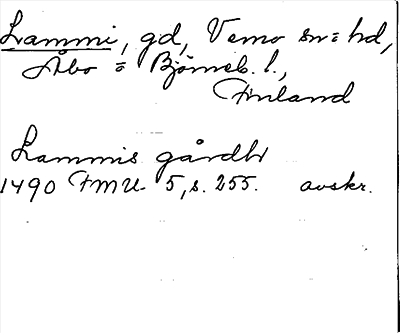 Lammi, gd, Vemo sn = hd,
Åbo = Björneb. l.,
Finland
Lammis gårdh
1490 FMU 5, s. 255. avskr.